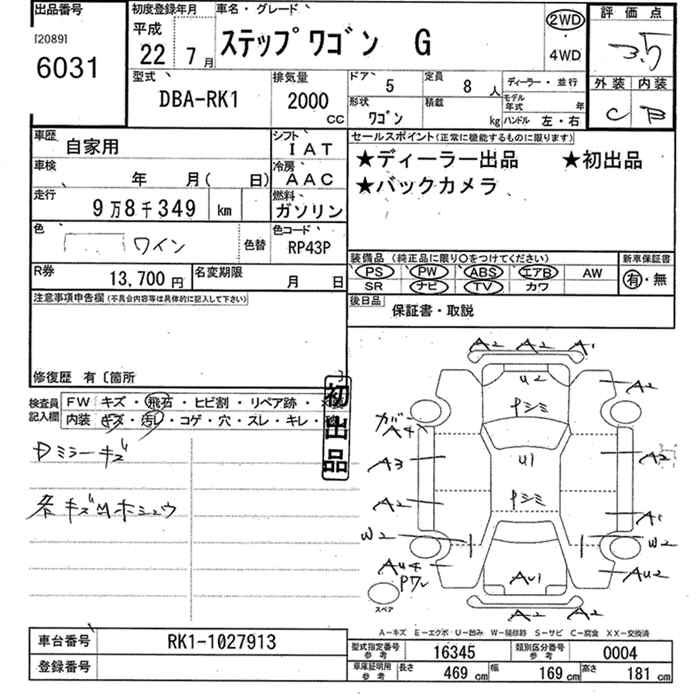 出品番号
[2089]
6031
初度登録年月
平成
22 7月
車名・グレード
ステップワゴン G
2WD
4WD
評価点
3.5
外装 内装
C B
型式
DBA-RK1
排気量
2000
CC
ドア 5
形状 ワゴン
定員 8人
積載 kg
ディーラー・並行
モデル年式 年
ハンドル 左・右
車歴 自家用
シフト IAT
車検 年 月( 日)
冷房 AAC
走行 9万8千349 km
燃料 ガソリン
色 ワイン 色替
色コード RP43P
R券 13,700円
名変期限 月 日
セールスポイント(正常に機能するものに限ります)
★ディーラー出品 ★初出品
★バックカメラ
装備品(純正品に限り○をつけてください)
新車保証書
PS PW ABS エアB AW
SR ナビ TV カワ
有・無
後日品 保証書・取説
注意事項申告欄(不具合内容等は具体的に記入して下さい)
修復歴 有〔箇所 〕
検査員記入欄
FW キズ・飛石・ヒビ割・リペア跡・
内装 キズ・汚レ・コゲ・穴・スレ・キレ・
初出品
Dミラーキズ
各キズ凹ホシュウ
A2 A2 A1
U2
トシミ
A2
ガラ
A4
A3
U1
A2
トシミ
A2
A1
W2
W2
AU4
Pワレ
AU1
AU2
A2 A2
スペア
A-キズ E-エクボ U-凹み W-補修跡 S-サビ C-腐食 XX-交換済
車台番号 RK1-1027913
登録番号
型式指定番号 参考 16345
類別区分番号 参考 0004
車庫証明用 参考
長さ 469 cm 幅 169 cm 高さ 181 cm